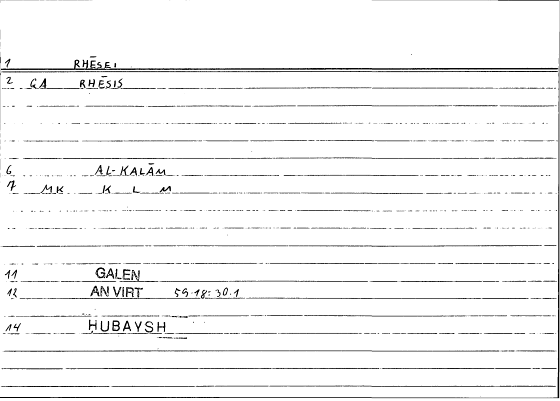 1 RHĒSEI
2 GA RHĒSIS
6 AL-KALĀM
7 MK K L M
11 GALEN
12 AN VIRT 59.18:30.1
14 ḤUBAYSH